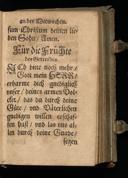 an der Mitwochen.
sum Christum deinen lie-
ben Sohn/ Amen.
Für die Früchte
des Getreides.
ICh bitte noch mehr/
Gott mein HERR/
erbarme dich gnädiglich
unser/ deiner armen Völ-
cker/ das du durch deine
Güte/ und Väterlichen
gnedigen willen
hast/ und las uns al-
len durch deine Gnade/
segen